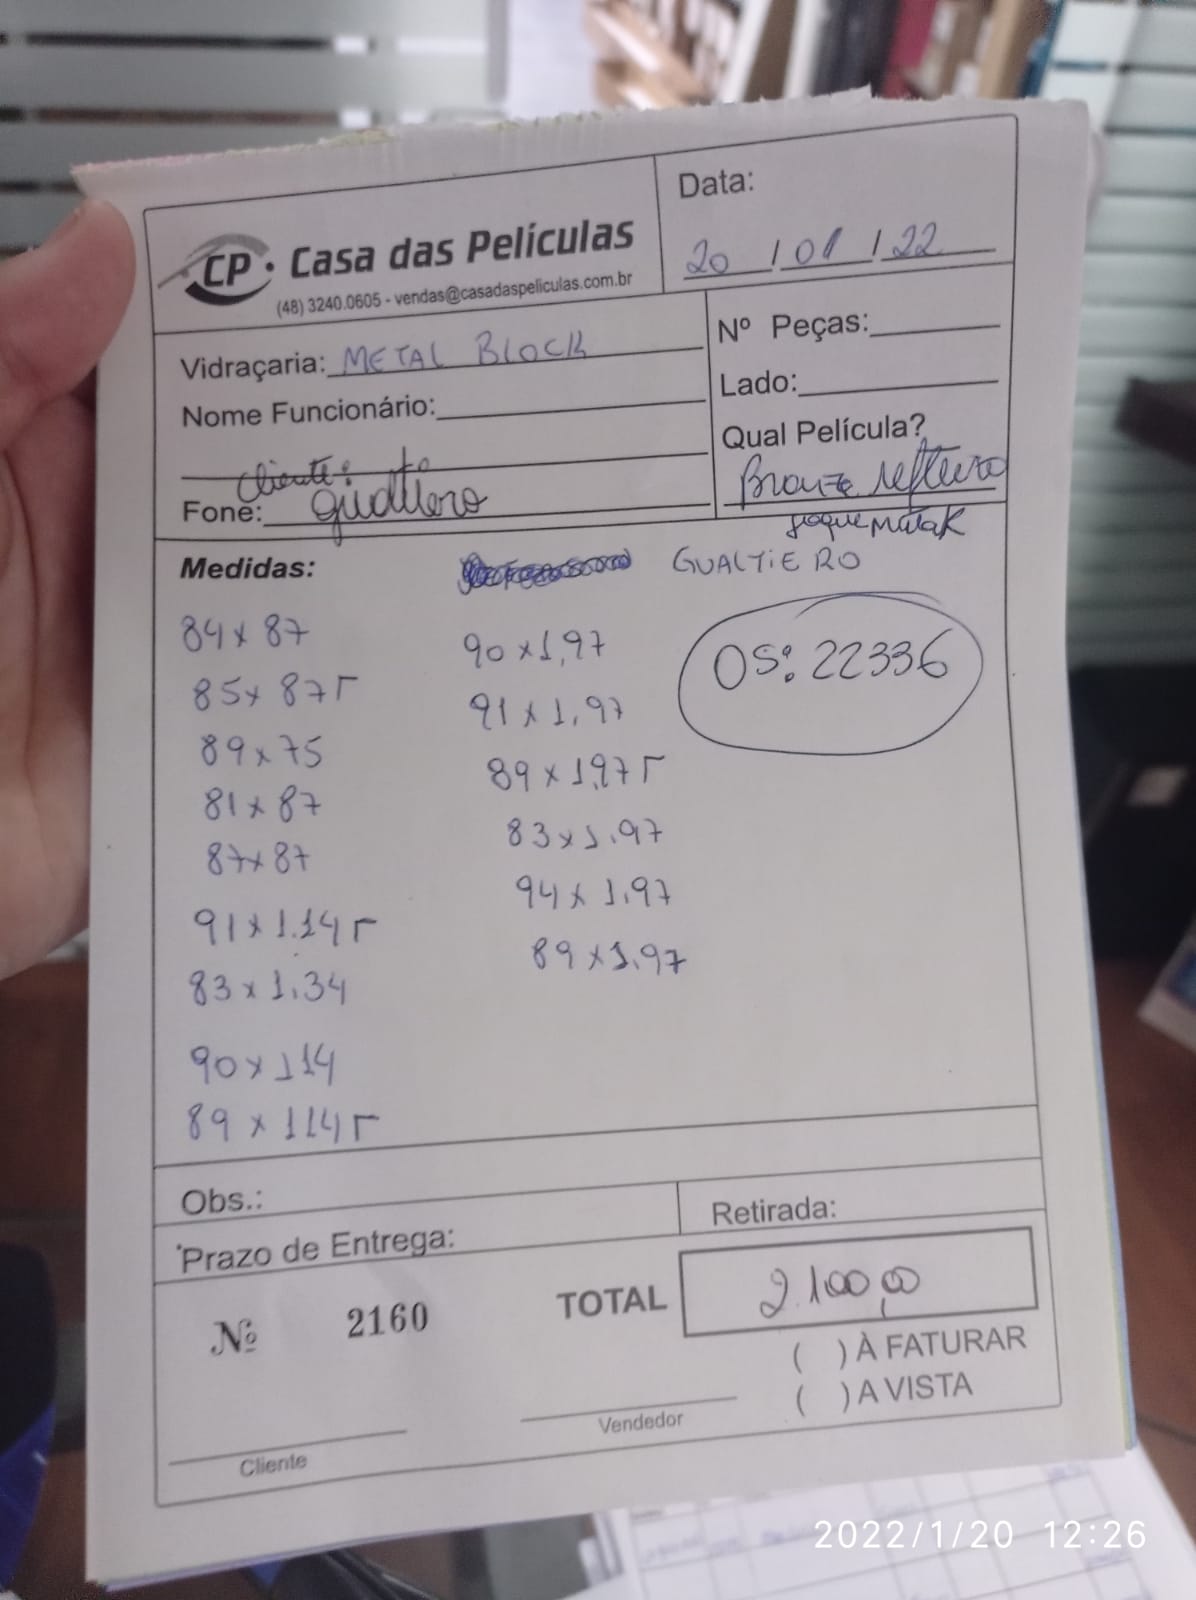 CP • Casa das Películas
(48) 3240.0605 - vendas@casadaspeliculas.com.br
Data:
20 / 01 / 22
Vidraçaria: METAL BLOCK
Nome Funcionário:
Cliente:
Fone: gualtiero
Nº Peças:
Lado:
Qual Película?
Bronze refletivo
Medidas:
GUALTIERO
OS: 22336
84 x 87
85 x 87 Γ
89 x 75
81 x 87
87 x 87
91 x 1.14 Γ
83 x 1.34
90 x 114
89 x 114 Γ
90 x 1,97
91 x 1,97
89 x 1,97 Γ
83 x 1,97
94 x 1,97
89 x 1,97
Obs.:
Retirada:
Prazo de Entrega:
Nº 2160
TOTAL 2.100,00
( ) À FATURAR
( ) A VISTA
Vendedor
Cliente
2022/1/20 12:26